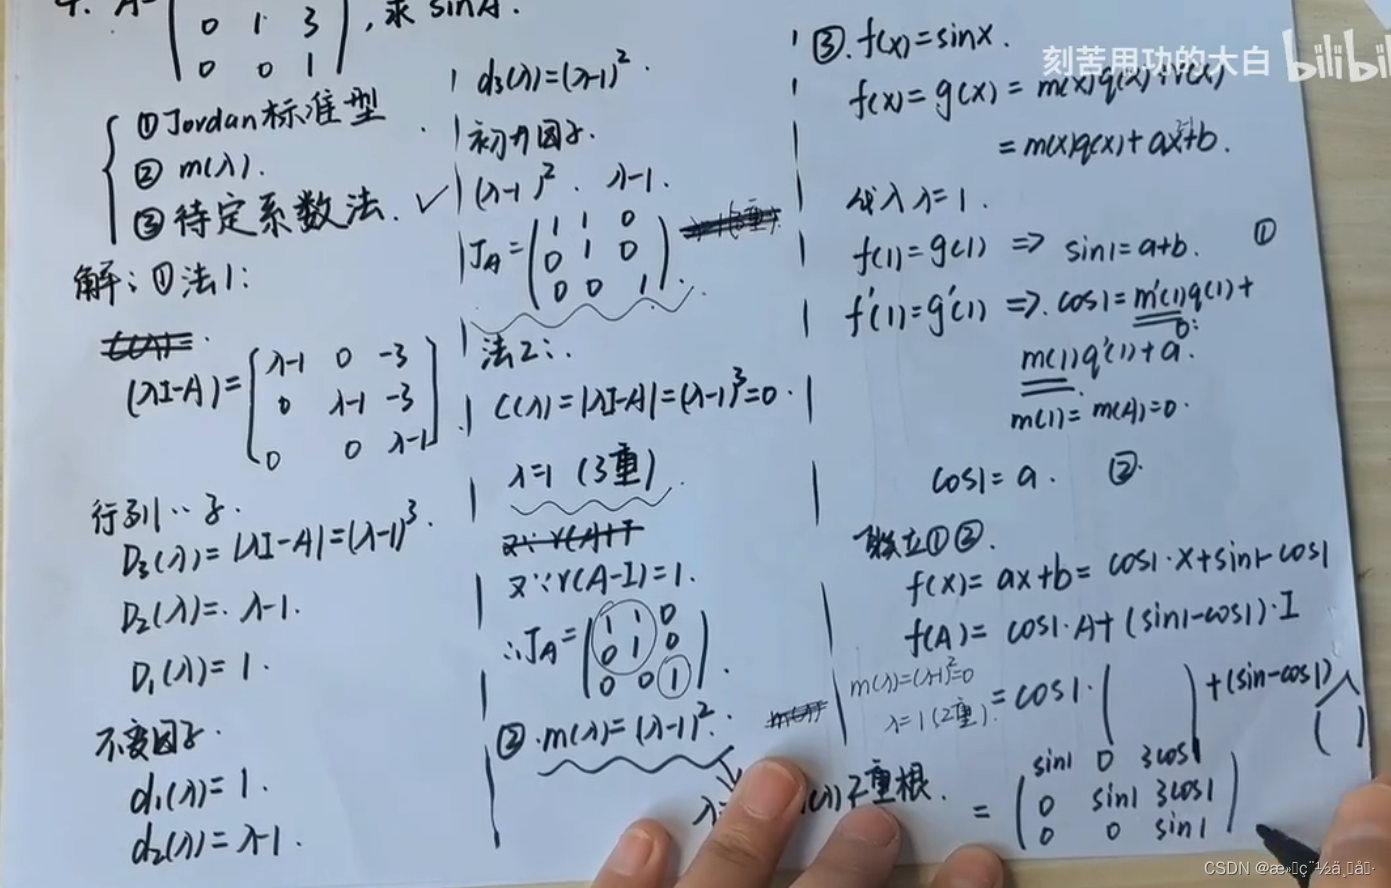 4. A=
0 1 3
0 0 1
, 求 sinA.
① Jordan标准型
② m(λ).
③ 待定系数法. ✓
解: ①法1:
(λI-A)=
λ-1 0 -3
0 λ-1 -3
0 0 λ-1
行列··子.
D₃(λ)=|λI-A|=(λ-1)³.
D₂(λ)=. λ-1.
D₁(λ)=1.
不变因子.
d₁(λ)=1.
d₂(λ)=λ-1.
d₃(λ)=(λ-1)².
初等因子.
(λ-1)². λ-1.
J_A=
1 1 0
0 1 0
0 0 1
法2:.
C(λ)=|λI-A|=(λ-1)³=0.
λ=1 (3重).
又∵r(A-I)=1.
∴J_A=
1 1 0
0 1 0
0 0 1
② .m(λ)=(λ-1)².
2重根.
③. f(x)=sinx.
f(x)=g(x)=m(x)q(x)+r(x)
=m(x)q(x)+ax+b.
代入λ=1.
f(1)=g(1) => sin1=a+b. ①
f'(1)=g'(1) =>. cos1=m'(1)q(1)+
0:
m(1)q'(1)+a.
m(1)=m(A)=0.
cos1=a. ②.
联立①②.
f(x)=ax+b=cos1·x+sin1-cos1
f(A)=cos1·A+(sin1-cos1)·I
m(λ)=(λ-1)²=0
λ=1(2重).
=cos1·( )+(sin-cos1)
( )
=
sin1 0 3cos1
0 sin1 3cos1
0 0 sin1
刻苦用功的大白 bilibil